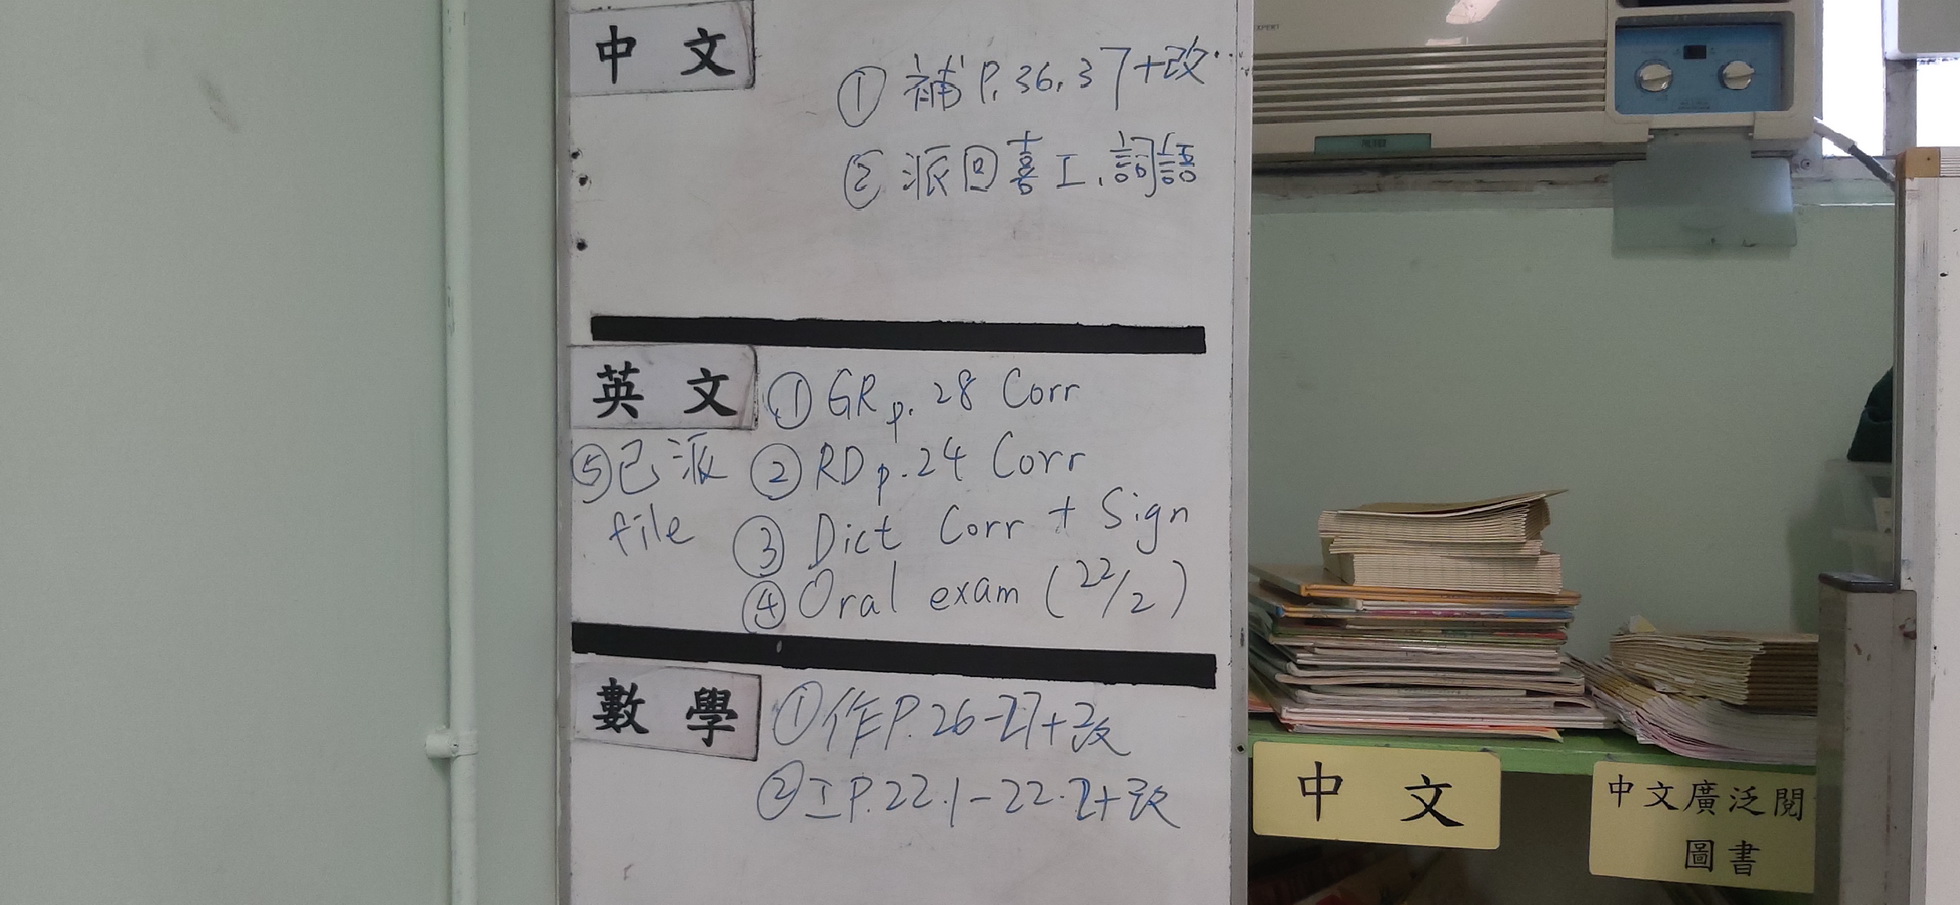 中文
① 補P.36,37+改
② 派回喜工,詞語
英文
① GR p.28 Corr
② RD p.24 Corr
③ Dict Corr + Sign
④ Oral exam (22/2)
⑤ 已派
file
數學
① 作P.26-27+改
② 工P.22.1-22.2+改
中文
中文廣泛閱
圖書